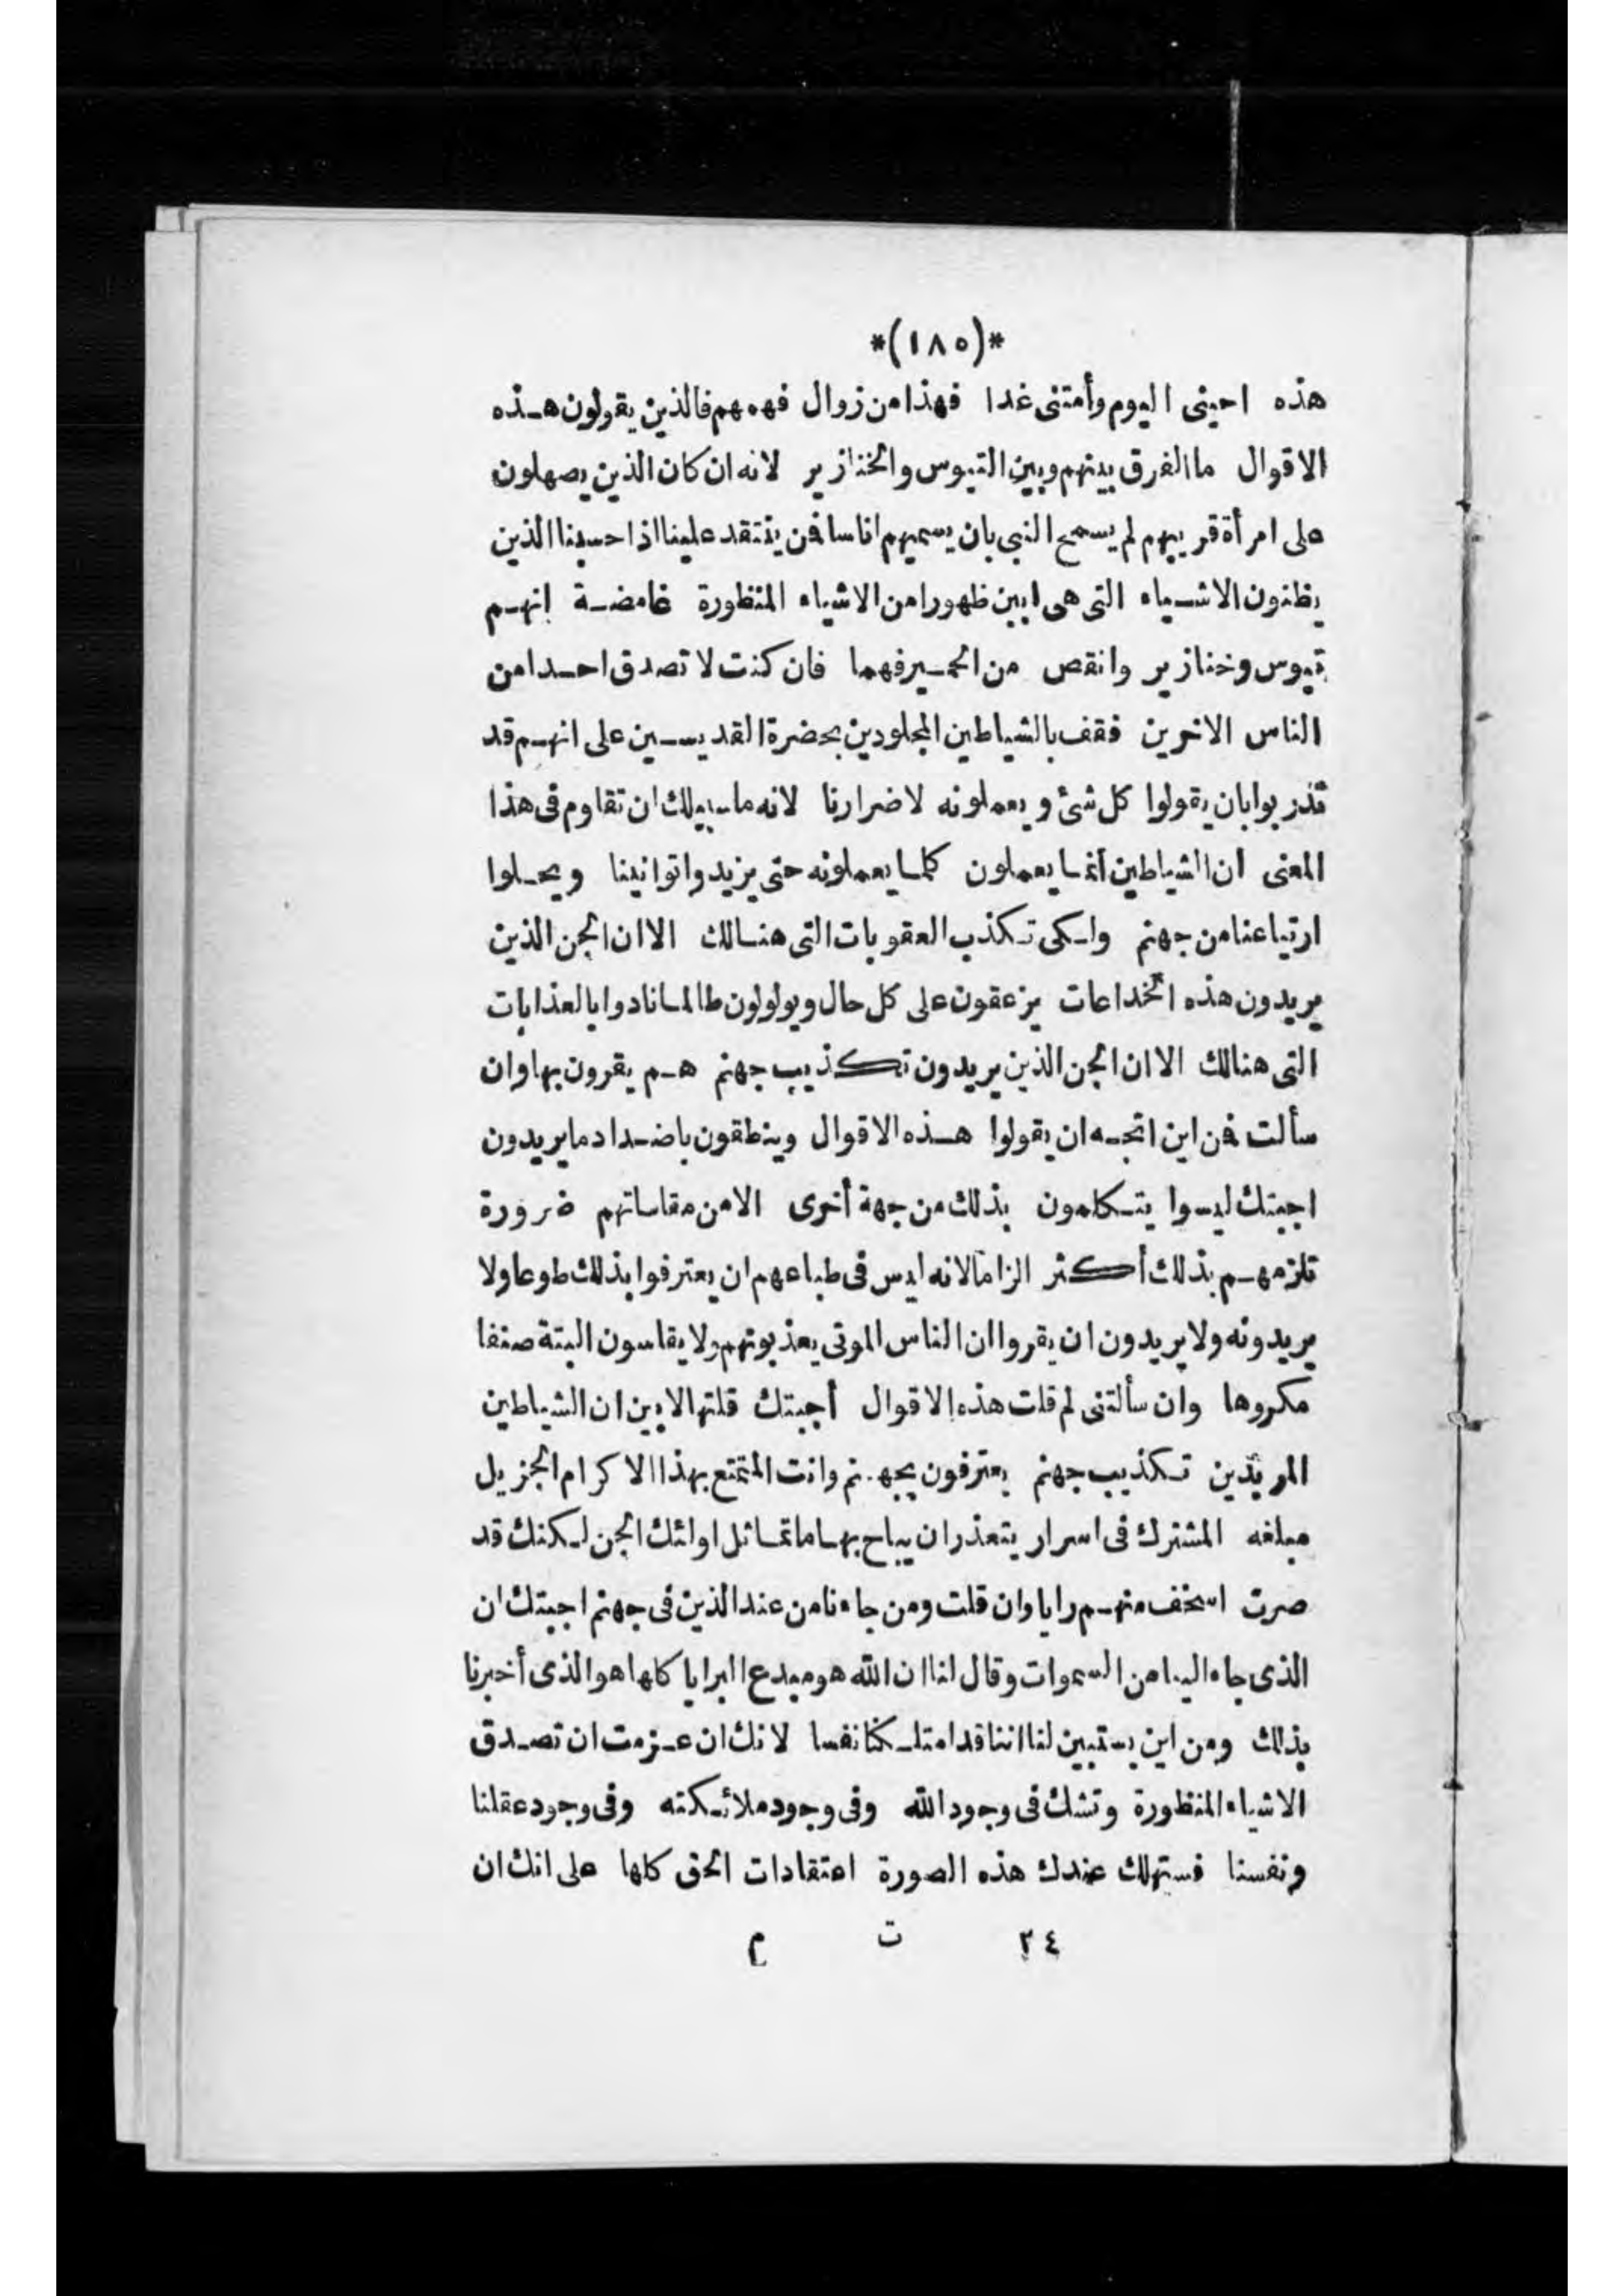 *(١٨٥)*
هذه احينى اليوم وأمتنى غدا فهذا من زوال فهمهم فالذين يقولون هذه
الاقوال ما الفرق بينهم وبين التيوس والخنازير لانه ان كان الذين يصهلون
على امرأة قريبهم لم يسمح النبى بان يسميهم اناسا فمن ينتقد علينا اذا حسبنا الذين
يظنون الاشياء التى هى ابين ظهورا من الاشياء المنظورة غامضة انهم
تيوس وخنازير وانقص من الحمير فهما فان كنت لا تصدق احدا من
الناس الاخرين فقف بالشياطين المجلودين بحضرة القديسين على انهم قد
تدربوا بان يقولوا كل شئ ويعملونه لاضرارنا لانه ما سبيلك ان تقاوم فى هذا
المعنى ان الشياطين انما يعملون كلما يعملونه حتى يزيدوا توانينا ويحلوا
ارتياعنا من جهنم ولكى تكذب العقوبات التى هنالك الا ان الجن الذين
يريدون هذه الخداعات يزعقون على كل حال ويولولون طالما نادوا بالعذابات
التى هنالك الا ان الجن الذين يريدون تكذيب جهنم هم يقرون بها وان
سألت فمن اين اتجه ان يقولوا هذه الاقوال وينطقون باضداد ما يريدون
اجبتك ليسوا يتكلمون بذلك من جهة أخرى الا من مقاساتهم ضرورة
تلزمهم بذلك أكثر الزاما لانه ليس فى طباعهم ان يعترفوا بذلك طوعا ولا
يريدونه ولا يريدون ان يقروا ان الناس الموتى يعذبوتهم ولا يقاسون البتة صنفا
مكروها وان سألتنى لم قلت هذه الاقوال أجبتك قلتها لابين ان الشياطين
المريدين تكذيب جهنم يعترفون بجهنم وانت المتمتع بهذا الاكرام الجزيل
مبلغه المشترك فى اسرار يتعذر ان يباح بها ما تماثل اولئك الجن لكنك قد
صرت اسخف منهم رايا وان قلت ومن جاءنا من عند الذين فى جهنم اجبتك ان
الذى جاء الينا من السموات وقال لنا ان الله هو مبدع البرايا كلها هو الذى أخبرنا
بذلك ومن اين يستبين لنا اننا قد امتلكنا نفسا لانك ان عزمت ان تصدق
الاشياء المنظورة وتشك فى وجود الله وفى وجود ملائكته وفى وجود عقلنا
ونفسنا فستهلك عندك هذه الصورة اعتقادات الحق كلها على انك ان
٢٤ ت م